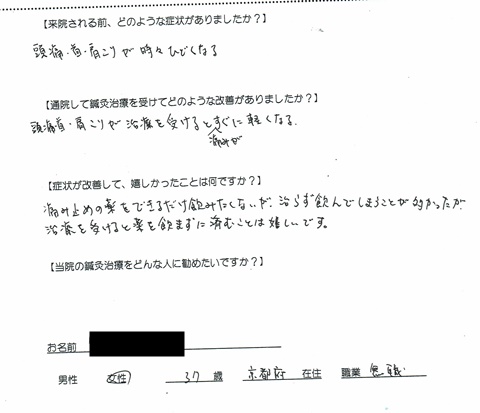 【来院される前、どのような症状がありましたか？】
頭痛・首・肩こりが時々ひどくなる
【通院して鍼灸治療を受けてどのような改善がありましたか？】
頭痛首・肩こりが治療を受けるとすぐに軽くなる.
痛みが
【症状が改善して、嬉しかったことは何ですか？】
痛み止めの薬をできるだけ飲みたくないが、治らず飲んでしまうことが多かったが
治療を受けると薬を飲まずに済むことは嬉しいです。
【当院の鍼灸治療をどんな人に勧めたいですか？】
お名前
男性 女性 37 歳 京都府 在住 職業 無職